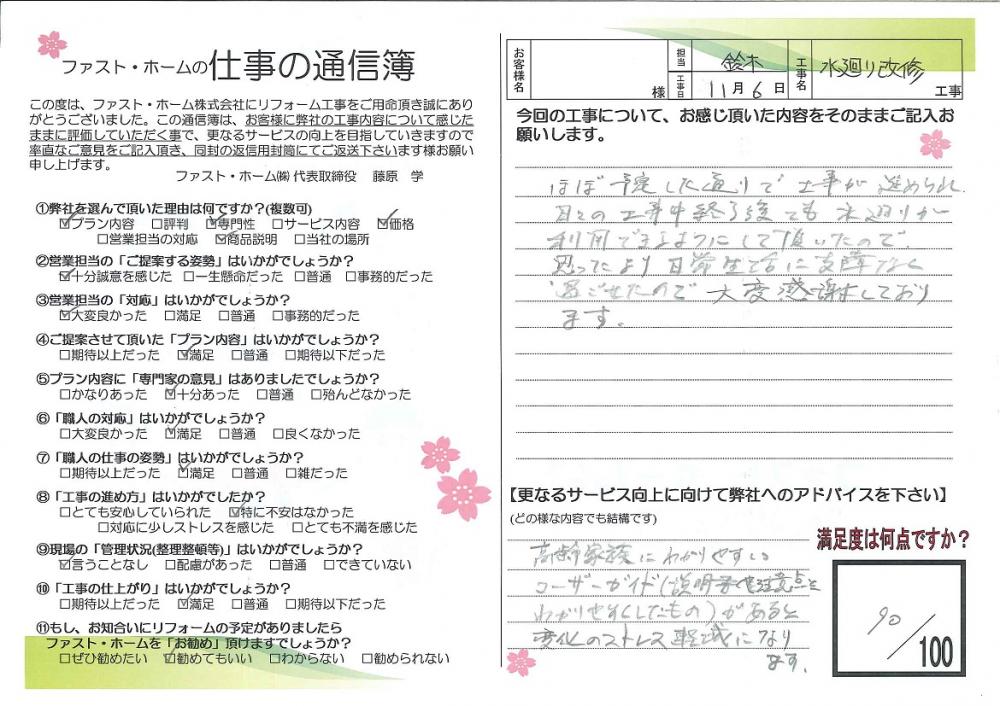 ファスト・ホームの仕事の通信簿
この度は、ファスト・ホーム株式会社にリフォーム工事をご用命頂き誠にあり
がとうございました。この通信簿は、お客様に弊社の工事内容について感じた
ままに評価していただく事で、更なるサービスの向上を目指していきますので
率直なご意見をご記入頂き、同封の返信用封筒にてご返送下さいます様お願い
申し上げます。
ファスト・ホーム㈱ 代表取締役 藤原 学
①弊社を選んで頂いた理由は何ですか?(複数可)
☑プラン内容 □評判 ☑専門性 □サービス内容 ☑価格
□営業担当の対応 ☑商品説明 □当社の場所
②営業担当の「ご提案する姿勢」はいかがでしょうか?
☑十分誠意を感じた □一生懸命だった □普通 □事務的だった
③営業担当の「対応」はいかがでしょうか?
☑大変良かった □満足 □普通 □事務的だった
④ご提案させて頂いた「プラン内容」はいかがでしょうか?
□期待以上だった ☑満足 □普通 □期待以下だった
⑤プラン内容に「専門家の意見」はありましたでしょうか?
□かなりあった ☑十分あった □普通 □殆んどなかった
⑥「職人の対応」はいかがでしょうか?
□大変良かった ☑満足 □普通 □良くなかった
⑦「職人の仕事の姿勢」はいかがでしょうか?
□期待以上だった ☑満足 □普通 □雑だった
⑧「工事の進め方」はいかがでしたか?
□とても安心していられた ☑特に不安はなかった
□対応に少しストレスを感じた □とても不満を感じた
⑨現場の「管理状況(整理整頓等)」はいかがでしょうか?
☑言うことなし □配慮があった □普通 □できていない
⑩「工事の仕上がり」はいかがでしょうか?
□期待以上だった ☑満足 □普通 □期待以下だった
⑪もし、お知合いにリフォームの予定がありましたら
ファスト・ホームを「お勧め」頂けますでしょうか?
□ぜひ勧めたい ☑勧めてもいい □わからない □勧められない
お客様名 様 担当 鈴木 工事日 11月6日 工事名 水廻り改修 工事
今回の工事について、お感じ頂いた内容をそのままご記入お
願いします。
ほぼ予定した通りで工事が進められ、
日々の工事中終了後でも水廻りが
利用できるようにして頂いたので、
思ったより日常生活に支障なく
過ごせたので大変感謝しており
ます。
【更なるサービス向上に向けて弊社へのアドバイスを下さい】
(どの様な内容でも結構です)
高齢家族にわかりやすい
ユーザーガイド(説明書や注意点を
わかりやすくしたもの)があると
変化のストレス軽減になり
ます。
満足度は何点ですか?
90/100